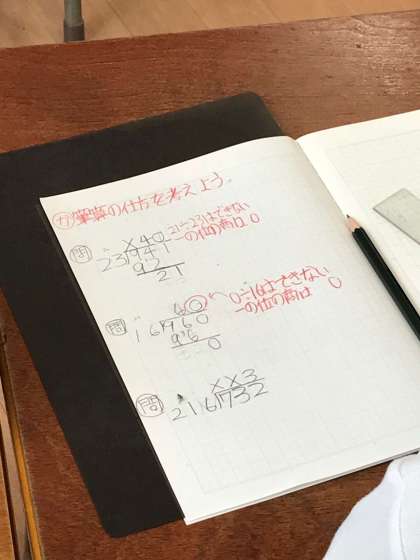 カ筆算の仕方を考えよう。
問
×40
23)941
92
21
21÷23はできない
一の位の商は0
問
60
16)960
96
0
0÷16はできない
一の位の商は0
問
××3
216)732